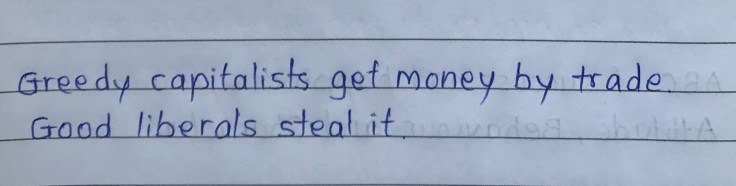 Greedy capitalists get money by trade.
Good liberals steal it.